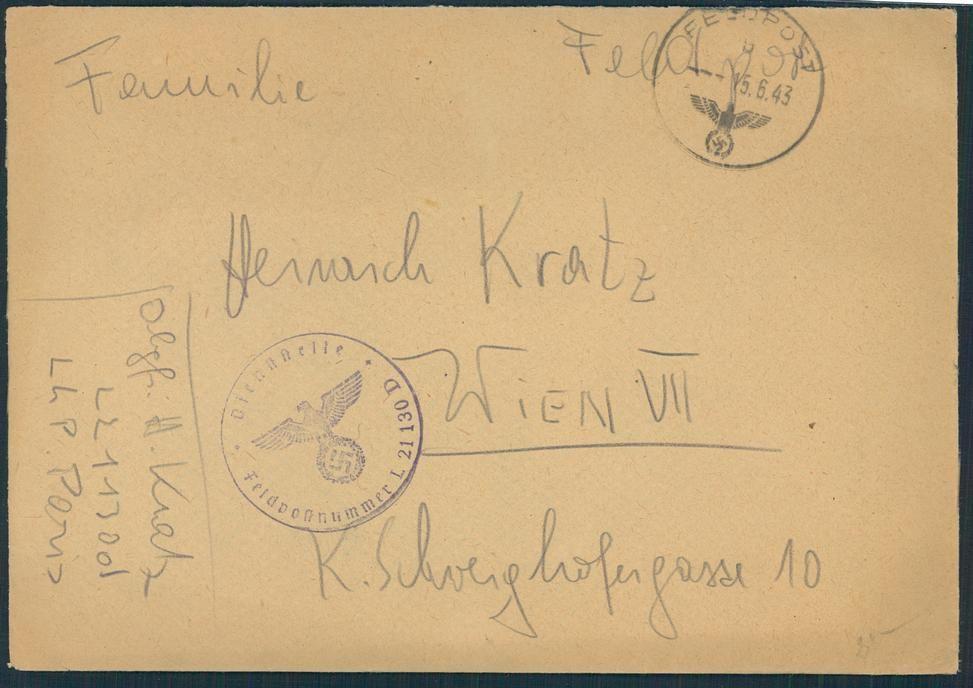 Familie
Feldpost
FELDPOST
15.6.43
Heinrich Kratz
WIEN VII
K. Schweighofergasse 10
Dienststelle
Feldpostnummer L 21130 D
Obgfr. H. Kratz
LGP. Paris